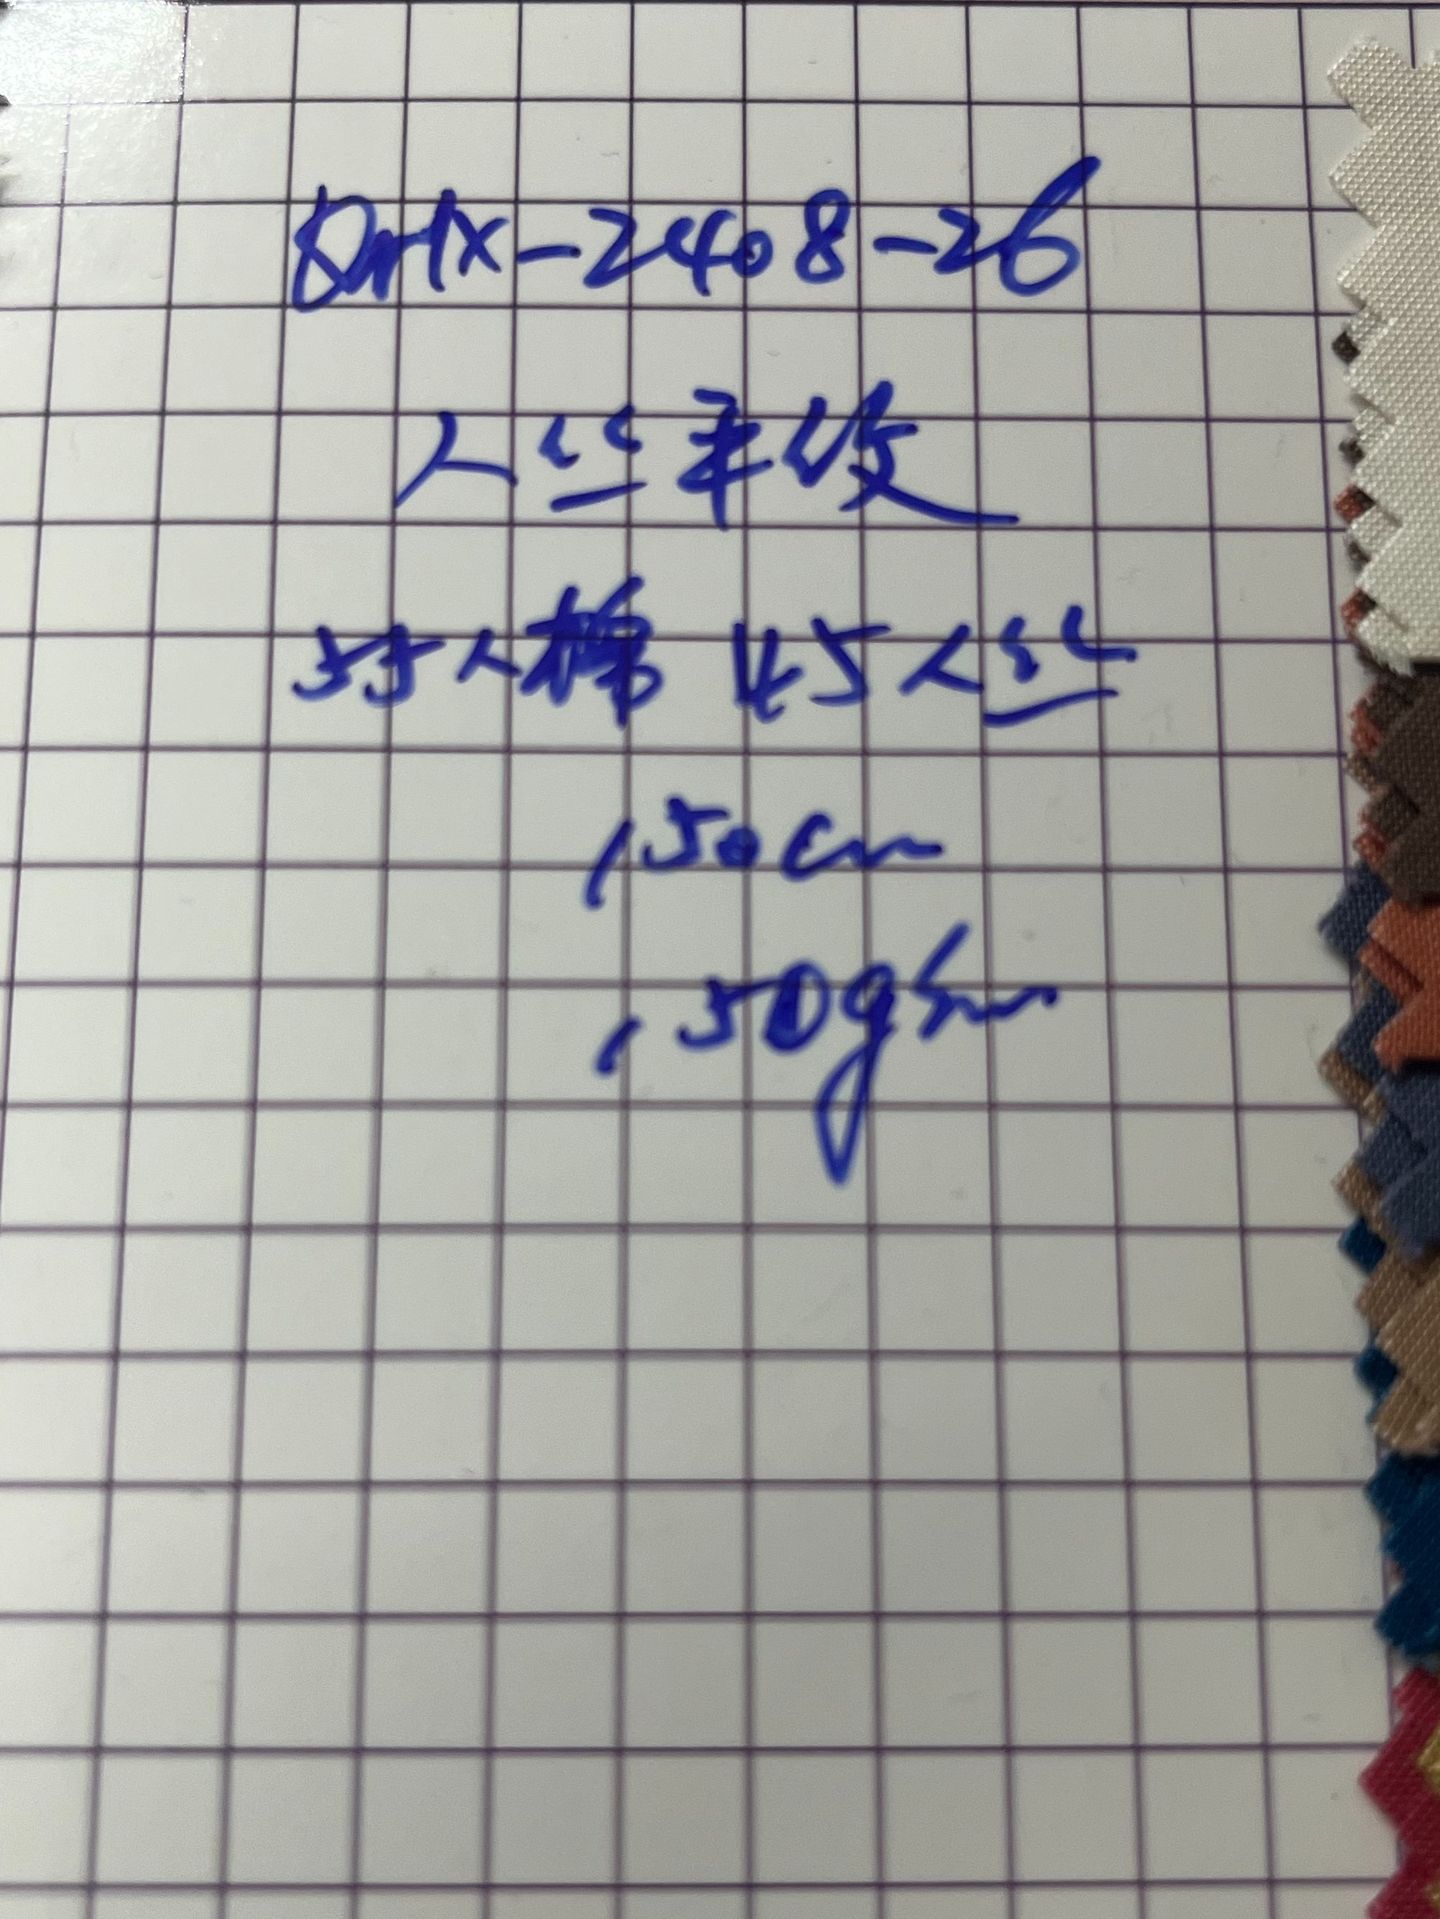 QHX-2408-26
人丝平纹
55人棉 45人丝
150cm
150gsm